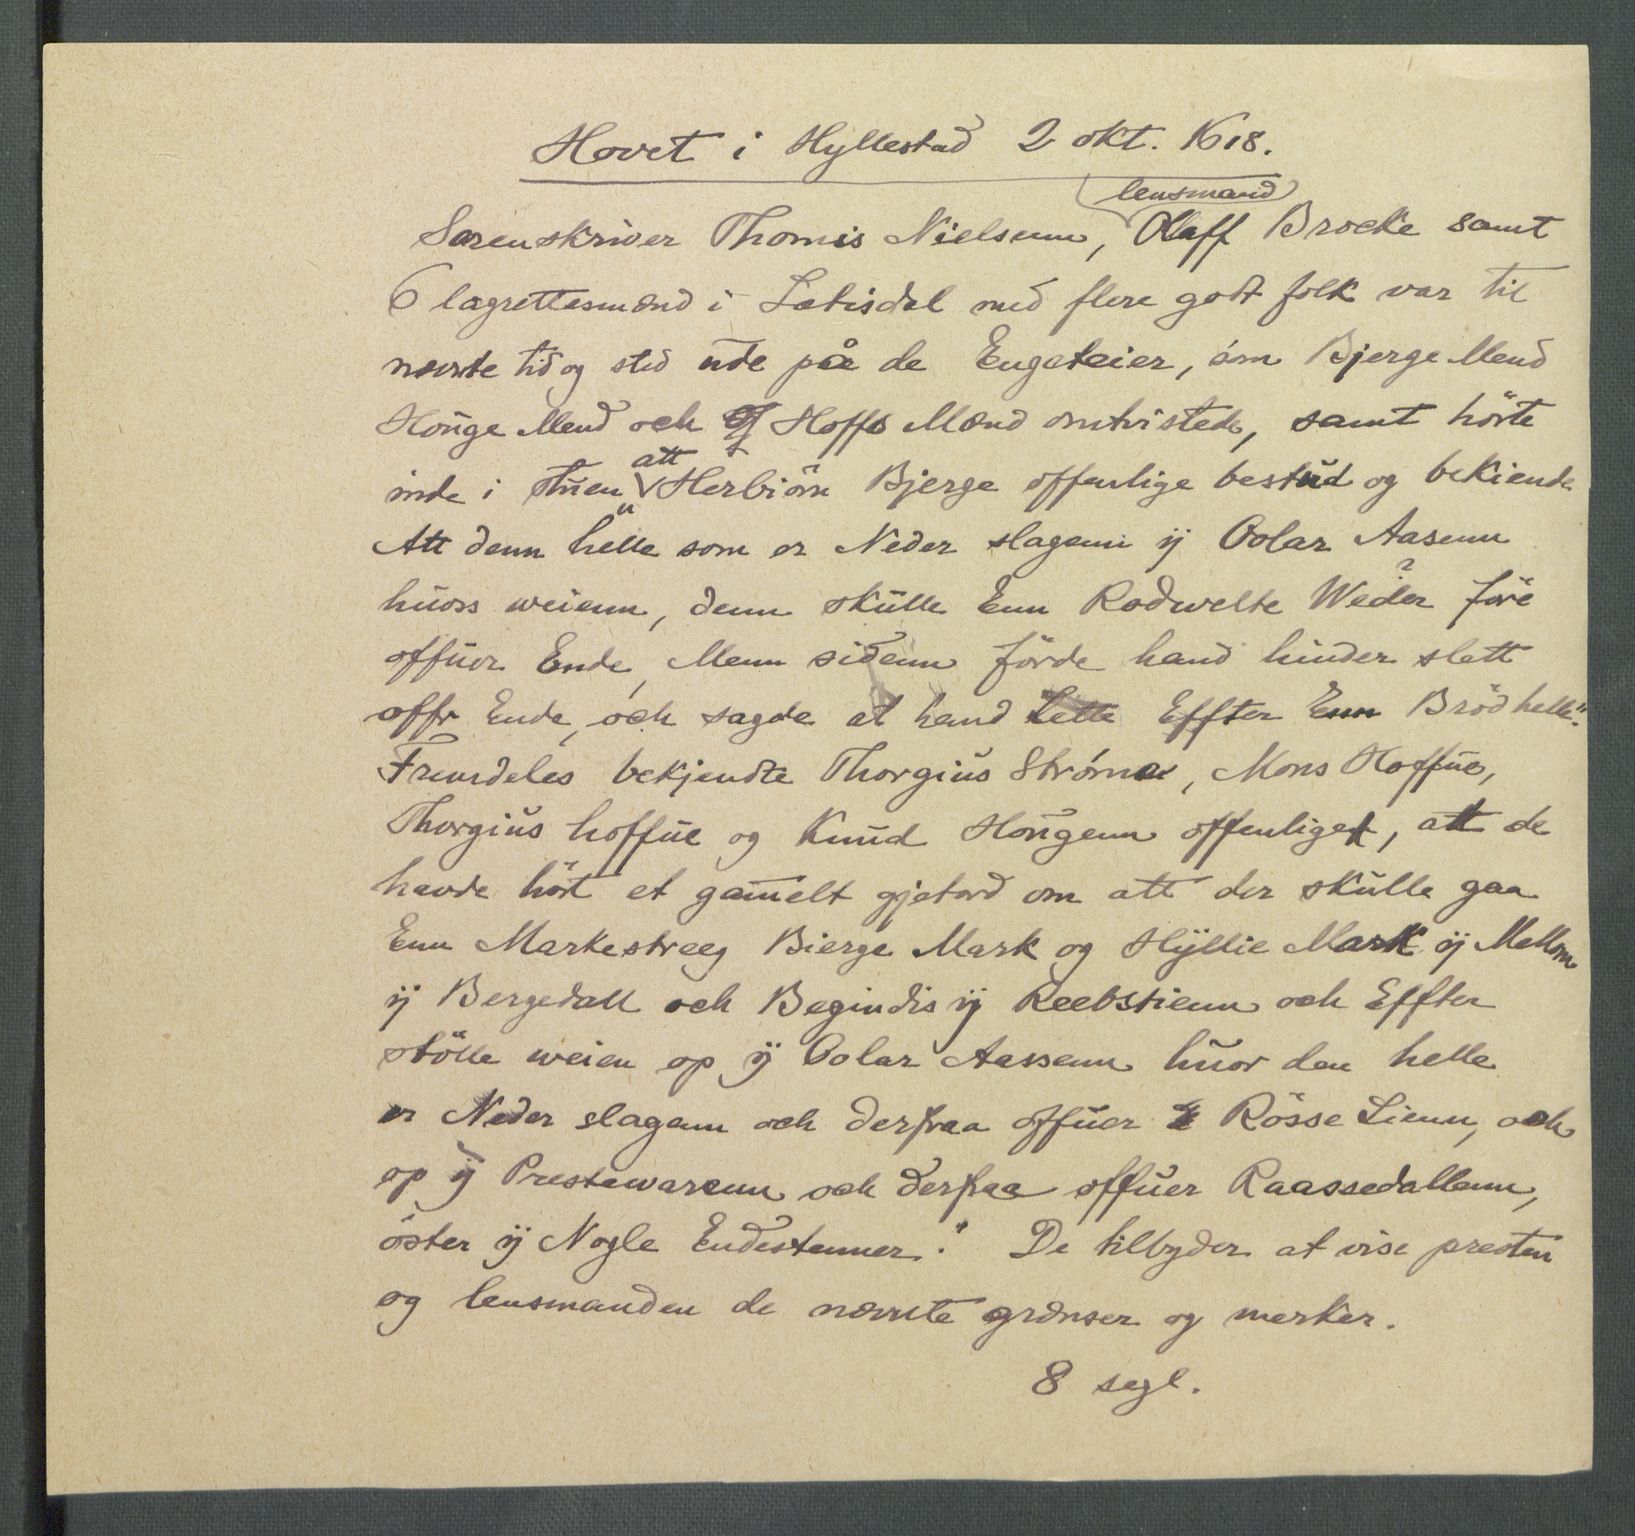 Hovet i Hyllestad 2 okt. 1618.
lensmand
Sorenskriver Thomis Nielsenn, Olaff Brocke samt
6 lagrettesmænd i Sætisdal med flere godt folk var til
nævnte tid og sted ude på de Engeteier, som Bjerge Mend
Houge Mend och Hoffs Mænd omtvistede, samt hörte
att
inde i stuen Herbiörn Bjerge offenlige bestud og bekiende
"Att denn helle som er Neder slagenn ij Oolar Aasenn
huoss weienn, denn skulle Enn Rodwelte Weder före
offuer Ende, Menn sidenn förde hand hinder slett
offr Ende, och sagde at hand lette Effter Enn Brödhelle".
Fremdeles bekjendte Thorgius Ströme, Mons Hoffue,
Thorgius hoffue og Knud Hougenn offenliget, att de
havde hört et gamelt gjetord om att der skulle gaa
Enn Markestreeg Bierge Mark og Hyllie Mark ij Mellom
ij Bergedall och Begindis ij Reebstienn och Effter
stölle weien op ij Oolar Aassenn huor den helle
er Neder slagenn och derfraa offuer Rösse Lienn, och
op ij Prestewarenn och derfraa offuer Raassedallenn,
öster ij Nogle Endestenner." De tilbyder at vise presten
og lensmanden de nævnte grænser og merker.
8 segl.